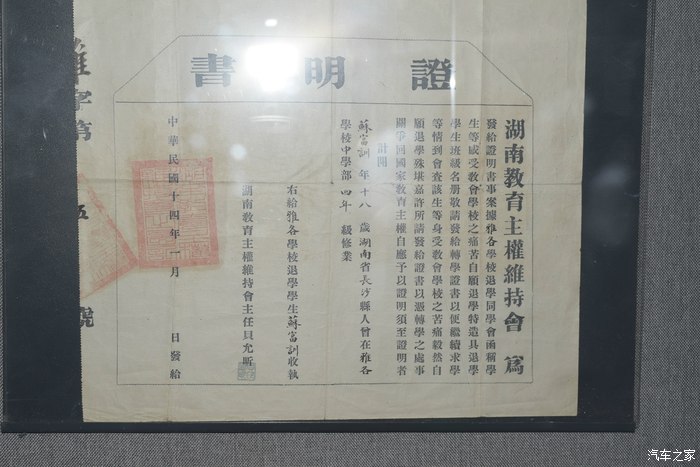 證明書
湖南教育主權維持會 為
發給證明書事案據雅各學校退學同學會函稱學
生等感受教會學校之痛苦自願退學特造具退學
學生班級名册敬請發給轉學證書以便繼續求學
等情到會查該生等身受教會學校之苦痛毅然自
願退學殊堪嘉許所請發給證書以憑轉學之處事
關爭回國家教育主權自應予以證明須至證明者
計開
蘇富訓 年十八 歲湖南省長沙縣人曾在雅各
學校中學部四年 級修業
右給雅各學校退學學生蘇富訓收執
湖南教育主權維持會主任貝允昕
中華民國十四年一月 日發給
雅字第 五 號
汽车之家